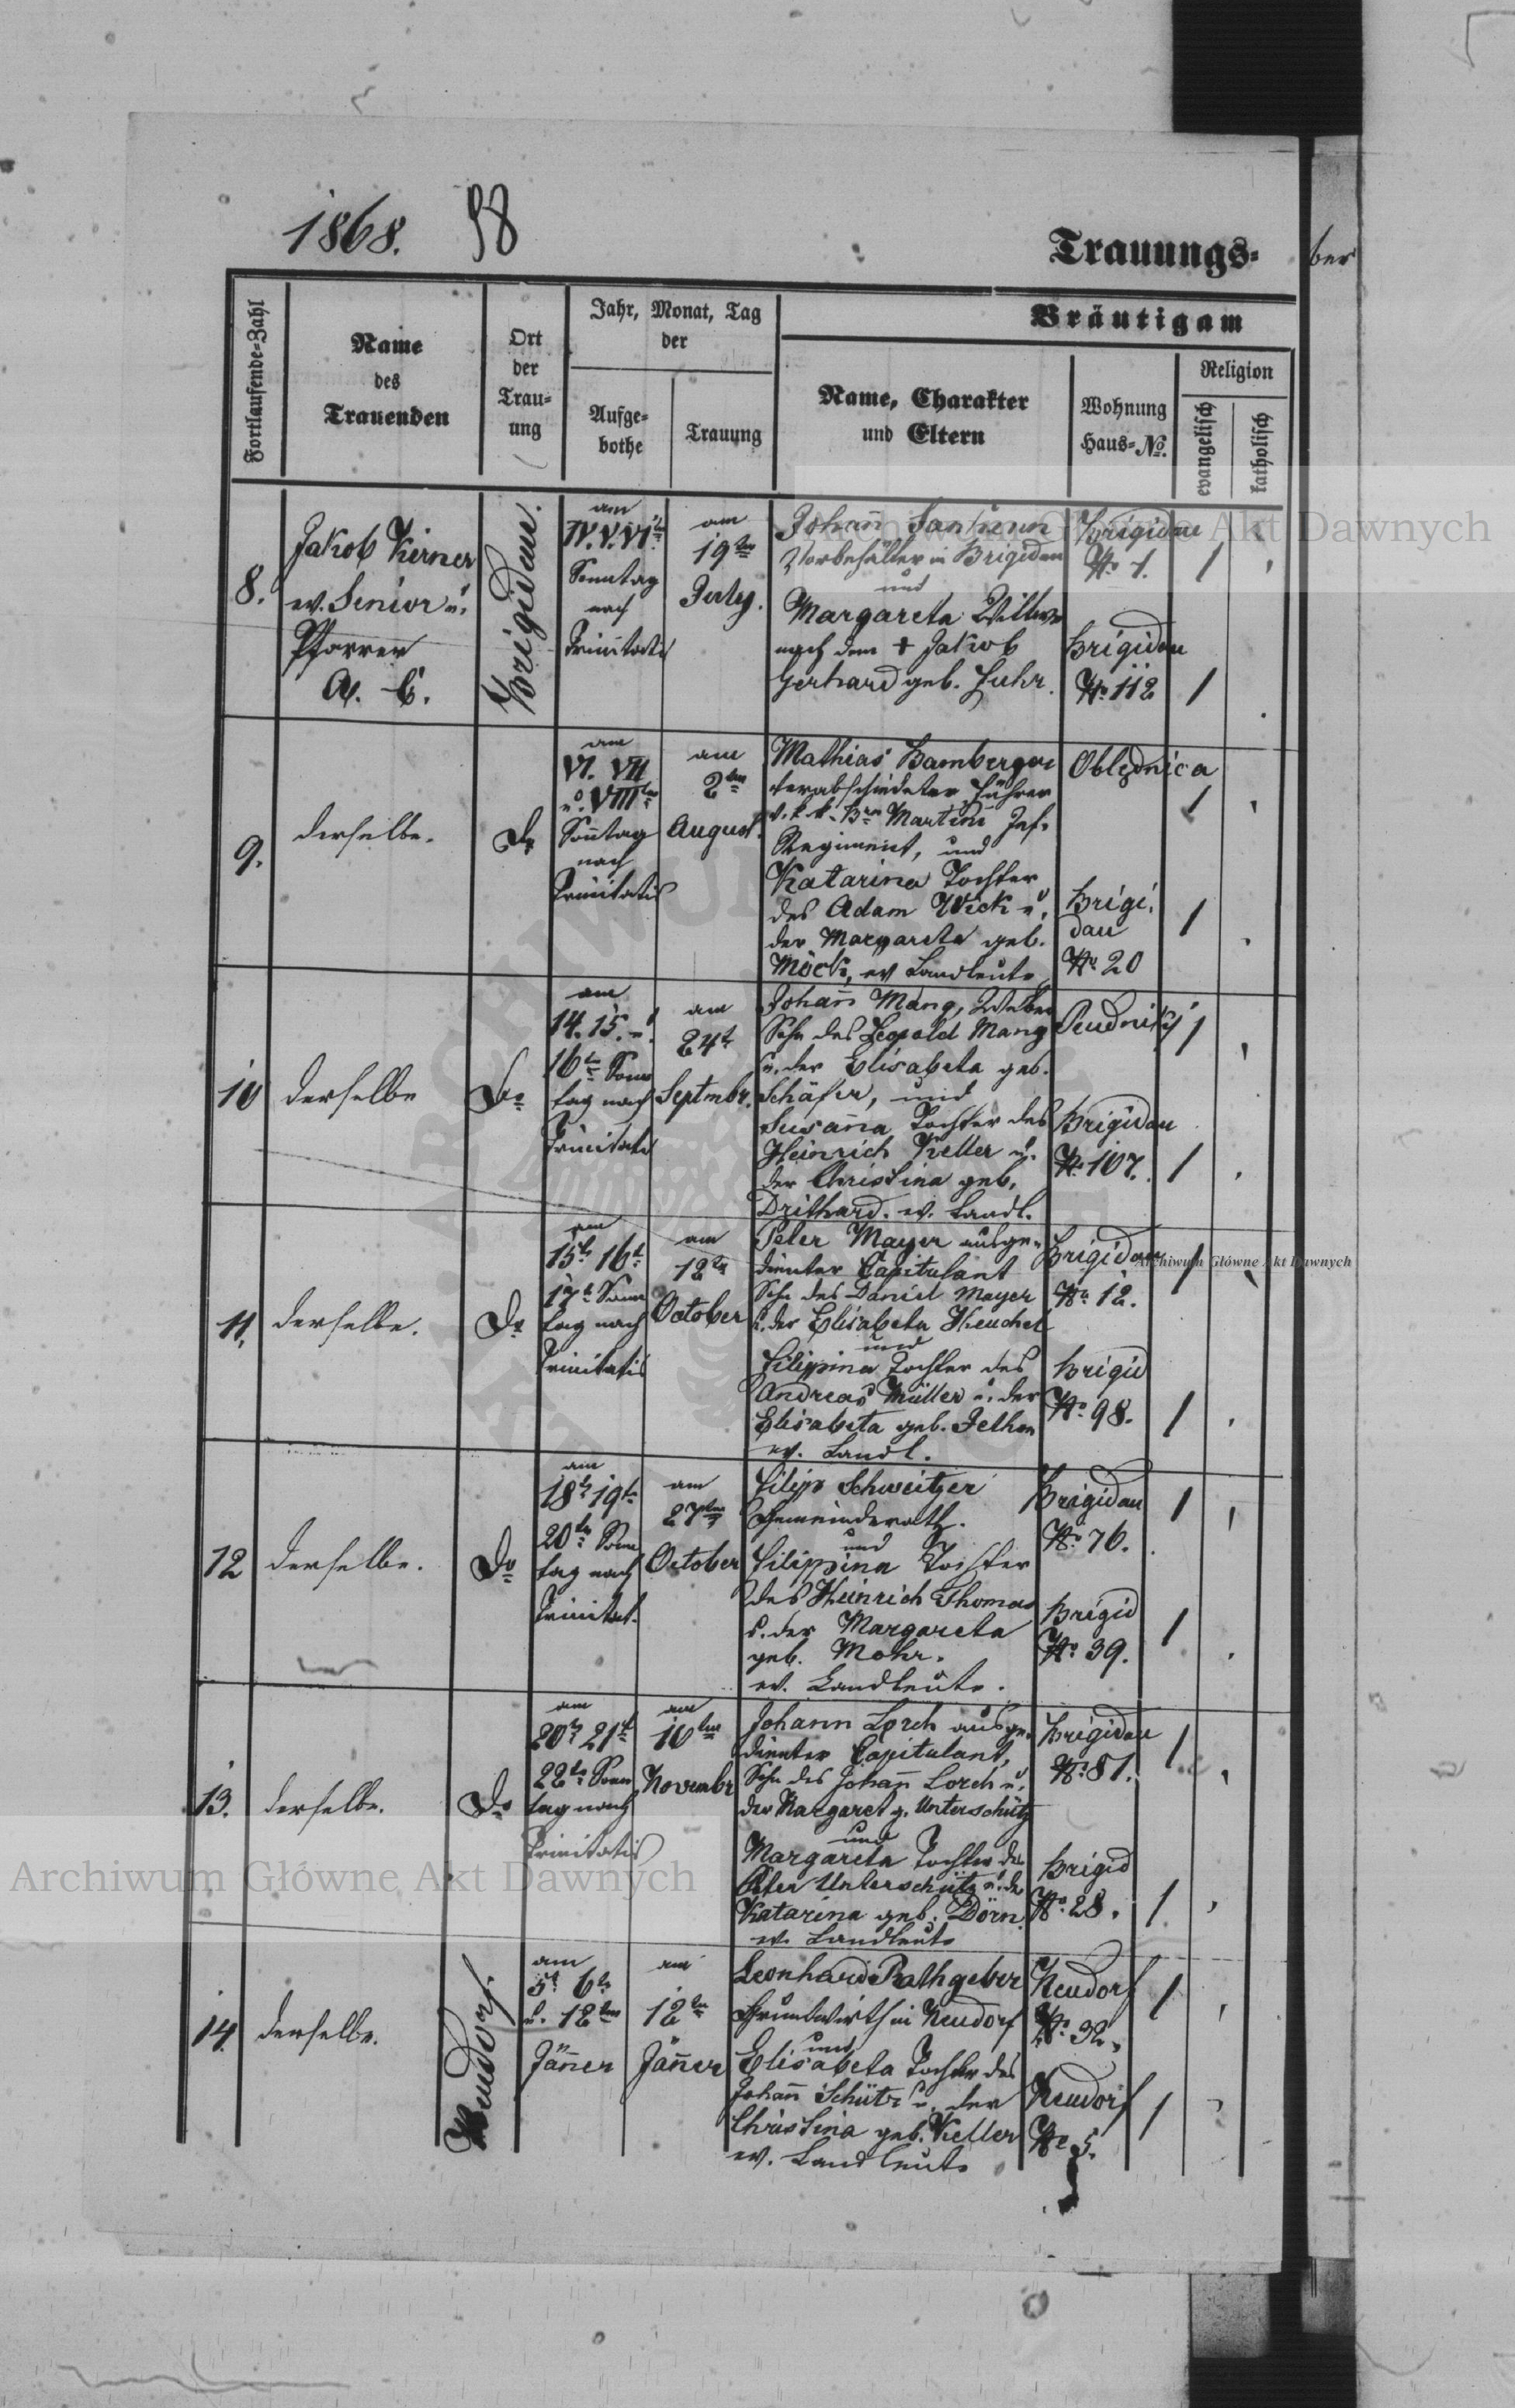 1868. 98
Trauungs-
ber
Fortlaufende-Zahl
Name
des
Trauenden
Ort
der
Trau-
ung
Jahr, Monat, Tag
der
Aufge-
bothe
Trauung
Bräutigam
Name, Charakter
und Eltern
Wohnung
Haus-No.
Religion
evangelisch
katholisch
8.
Jakob Kerner
ev. Senior u.
Pfarrer
A. C.
Brigidau.
am
IV. V. VI
Sonntag
nach
Trinitatis
am
19ten
July.
Johann
Vorbehälter in Brigidau
und
Margareta Wittwe
nach dem + Jakob
Gerhard geb. Fuhr.
Brigidau
No 1.
Brigidau
No 112
9.
derselbe.
Do
am
VI. VII
u. VIIIten
Sonntag
nach
Trinitatis
am
2ten
August.
Mathias Bamberger
verabschiedeter Führer
v. k. k. Bn Martini Inf.
Regiment, und
Katarina Tochter
des Adam Wick u.
der Margareta geb.
Möck, ev Landleute
Oblędnica
Brigi-
dau
No 20
10
derselbe
Do
am
14. 15. u.
16te Sonn
tag nach
Trinitatis
am
24t
Septmbr.
Johann Mang, Weber
Sohn des Leopold Mang
u. der Elisabeta geb.
Schäfer, und
Susanna Tochter des
Heinrich Keller u.
der Christina geb.
Drithard. ev. Landl.
Brigidau
No 107.
11.
derselbe.
Do
am
15t 16t
17t Sonn
tag nach
Trinitatis
am
12tn
October
Peter Mayer ausge-
dienter Capitulant
Sohn des Daniel Mayer
u. der Elisabeta Heuchel
und
Filippina Tochter des
Andreas Müller u. der
Elisabeta geb. Jethon
ev. Landl.
Brigidau
No 12.
Brigid
No 98.
12
derselbe.
Do
am
18t 19tn
20tn Sonn
tag nach
Trinitat.
am
27ten
October
Filipp Schweitzer
Gemeinderath.
und
Filippina Tochter
des Heinrich Thomas
u. der Margareta
geb. Mohr.
ev. Landleute.
Brigidau
No 76.
Brigid
No 39.
13.
derselbe.
Do
am
20t 21t
22tn Sonn
tag nach
Trinitatis
am
10ten
Novembr
Johann Lorch ausge-
dienter Capitulant,
Sohn des Johann Lorch u.
der Margaret g. Unterschütz
und
Margareta Tochter des
Peter Unterschütz u. der
Katarina geb. Dörn.
ev. Landleute
Brigidau
No 81.
Brigid
No 28.
14.
derselbe.
Neudorf.
am
5t 6tn
u. 12ten
Jänner
am
12tn
Jänner
Leonhard Rathgeber
Grundwirth in Neudorf
und
Elisabeta Tochter des
Johann Schütz u. der
Christina geb. Keller
ev. Landleute
Neudorf
No 32.
Neudorf
No 5.
Archiwum Główne Akt Dawnych
Archiwum Główne Akt Dawnych
Archiwum Główne Akt Dawnych